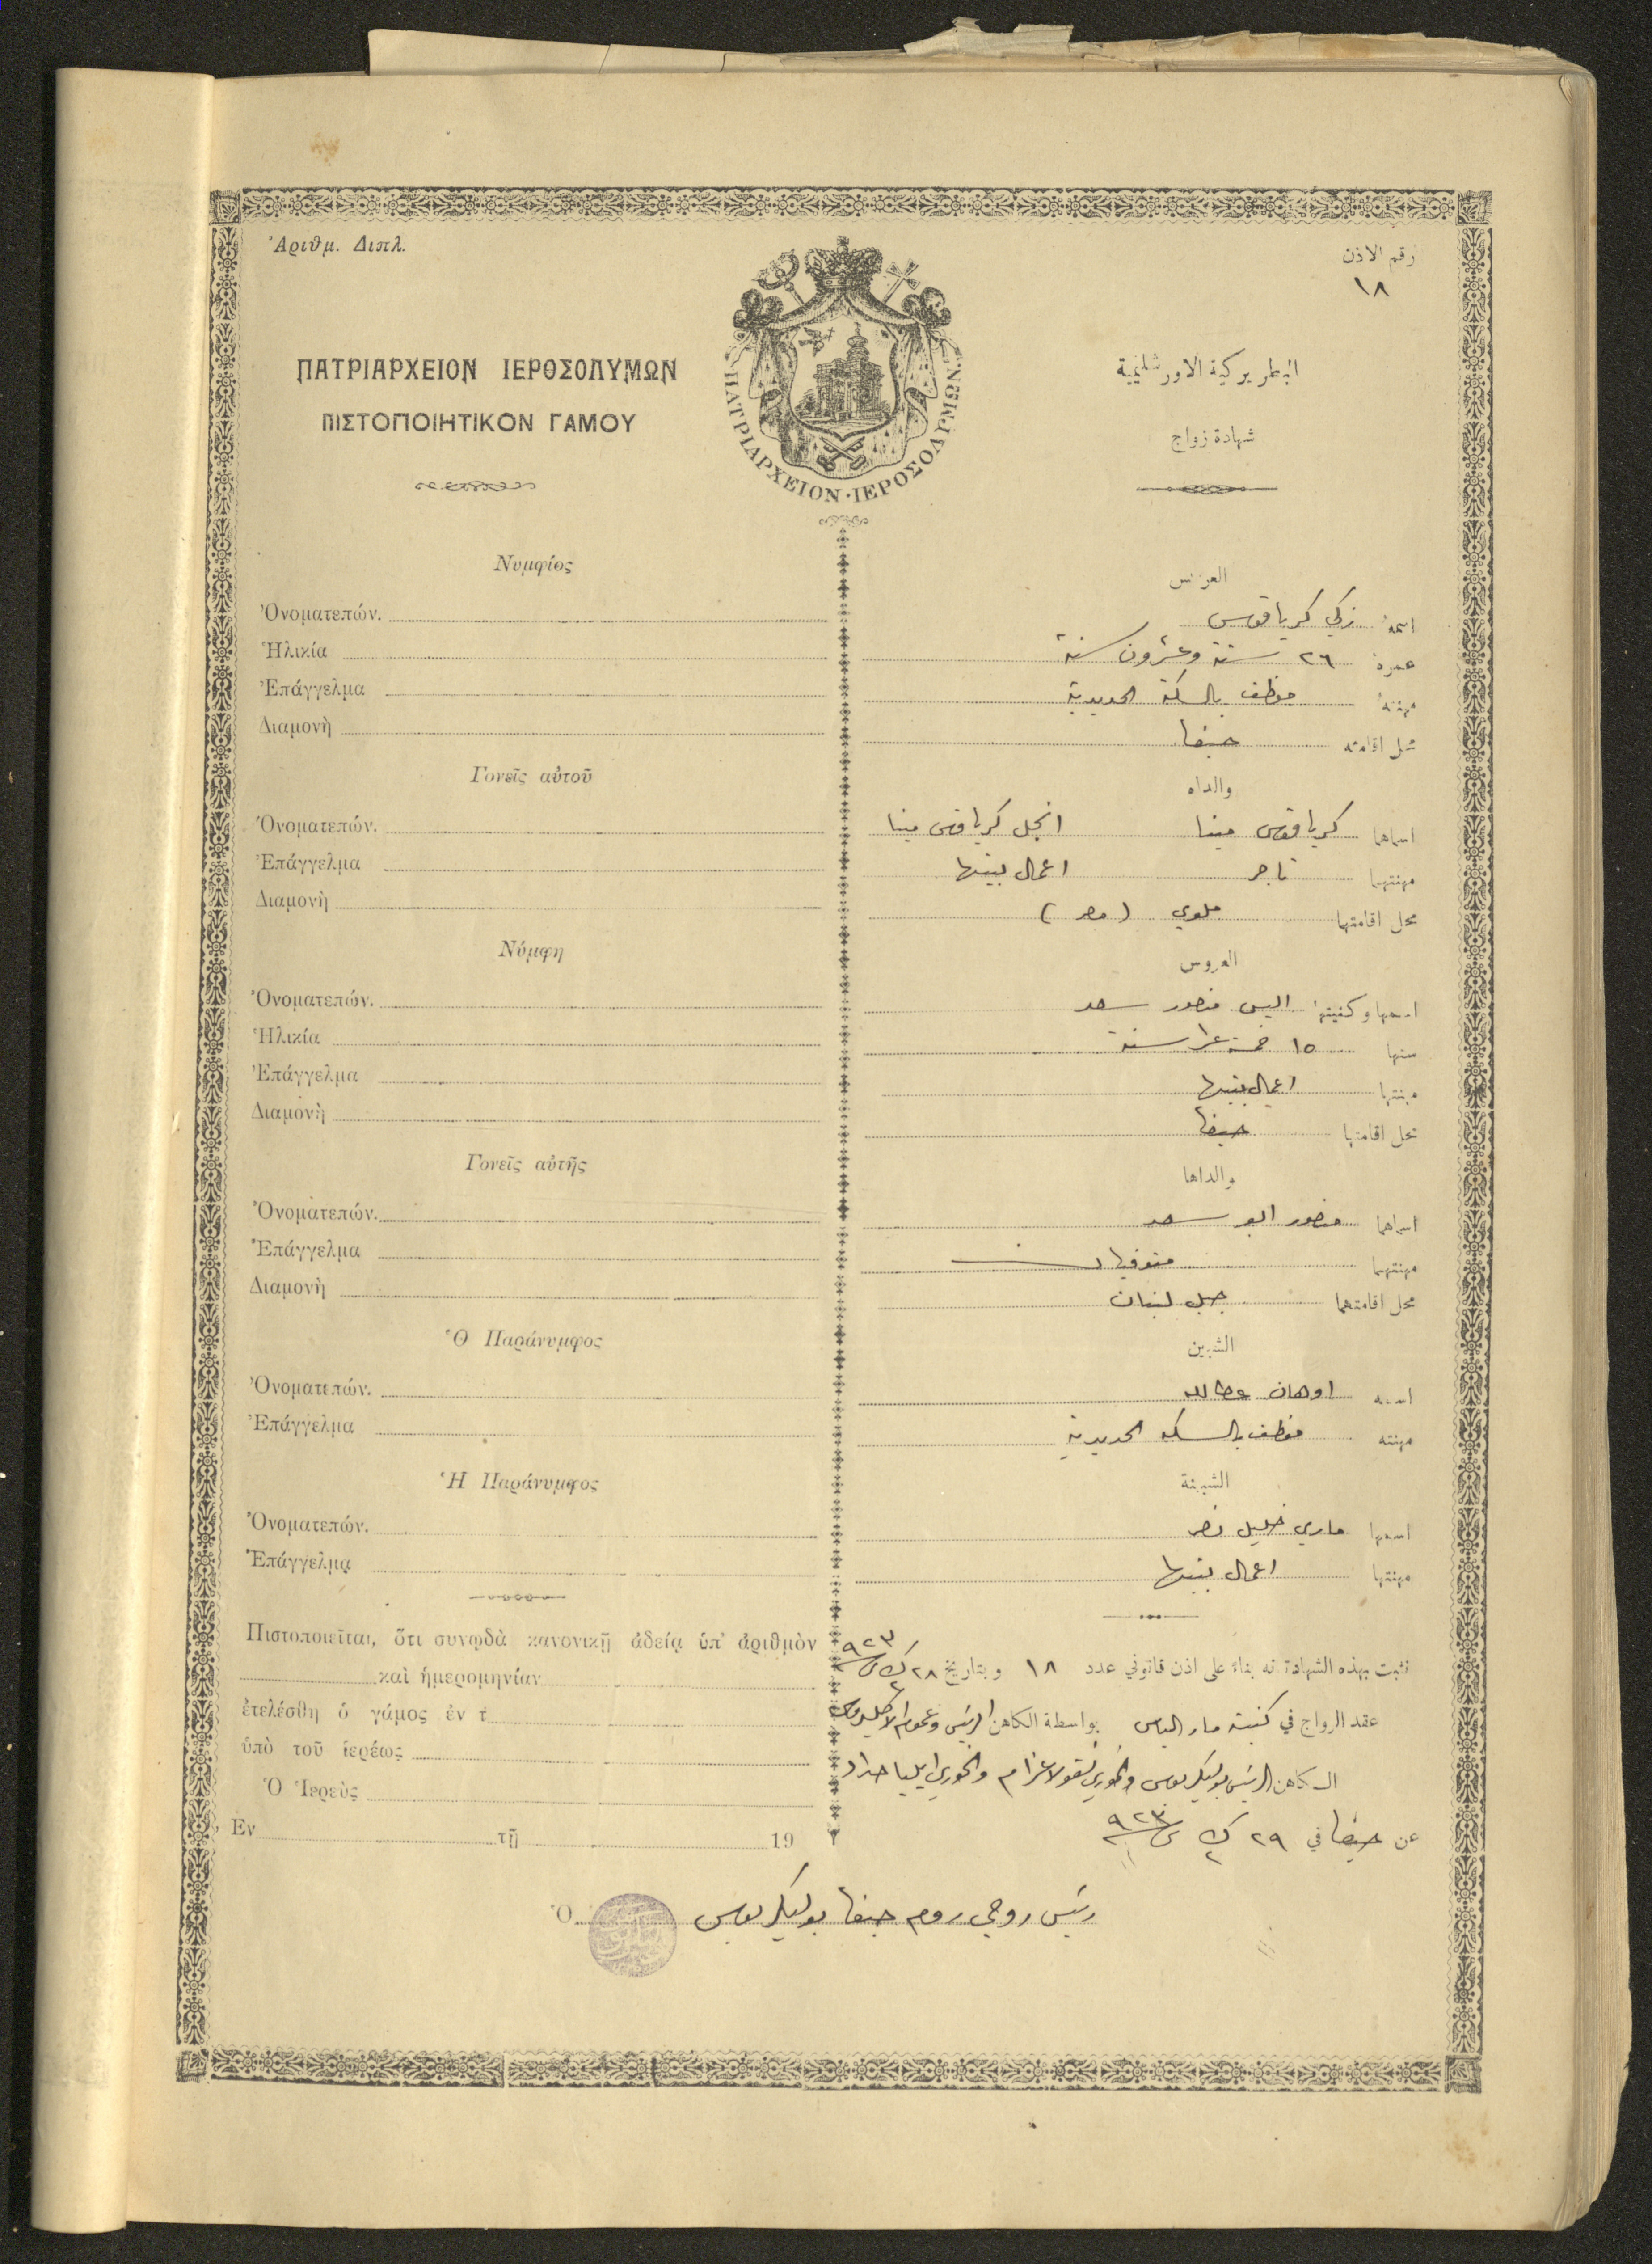 Ἀριθμ. Διπλ.
رقم الاذن
١٨
ΠΑΤΡΙΑΡΧΕΙΟΝ ΙΕΡΟΣΟΛΥΜΩΝ
ΠΙΣΤΟΠΟΙΗΤΙΚΟΝ ΓΑΜΟΥ
ΠΑΤΡΙΑΡΧΕΙΟΝ·ΙΕΡΟΣΟΛΥΜΩΝ
البطريركية الاورشليمية
شهادة زواج
Νυμφίος
Ὀνοματεπών.
Ἡλικία
Ἐπάγγελμα
Διαμονὴ
Γονεῖς αὐτοῦ
Ὀνοματεπών.
Ἐπάγγελμα
Διαμονὴ
Νύμφη
Ὀνοματεπών.
Ἡλικία
Ἐπάγγελμα
Διαμονὴ
Γονεῖς αὐτῆς
Ὀνοματεπών.
Ἐπάγγελμα
Διαμονὴ
Ὁ Παράνυμφος
Ὀνοματεπών.
Ἐπάγγελμα
Ἡ Παράνυμφος
Ὀνοματεπών.
Ἐπάγγελμα
Πιστοποιεῖται, ὅτι συνῳδὰ κανονικῇ ἀδείᾳ ὑπ' ἀριθμὸν
καὶ ἡμερομηνίαν
ἐτελέσθη ὁ γάμος ἐν τ
ὑπὸ τοῦ ἱερέως
Ὁ Ἱερεὺς
Ἐν τῇ 19
العريس
اسمه زكي كرياقوس
عمره ٢٦ ستة وعشرون سنة
مهنته موظف بالسكة الحديدية
محل اقامته حيفا
والداه
اسماهما كرياقوس مينا انجل كرياقوس مينا
مهنتهما تاجر اعمال بيتها
محل اقامتهما ملوي (مصر)
العروس
اسمها وكنيتها اليس منصور سعد
سنها ١٥ خمسة عشر سنة
مهنتها اعمال بيتها
محل اقامتها حيفا
والداها
اسماهما منصور ابو سعد
مهنتهما متوفيان
محل اقامتهما جبل لبنان
الشبين
اسمه اوهان عطالله
مهنته موظف بالسكة الحديدية
الشبينة
اسمها ماري خليل نصر
مهنتها اعمال بيتها
نثبت بهذه الشهادة انه بناءً على اذن قانوني عدد ١٨ وبتاريخ ٢٨ ك٢ سنة ٩٢٣
عقد الزواج في كنيسة مار الياس بواسطة الكاهن الرئيس وعموم الاكليروس
الكاهن الرئيس بوليكربوس والخوري نقولا عزام والخوري ايليا حداد
عن حيفا في ٢٩ ك٢ سنة ٩٢٣
Ὁ رئيس روحي روم حيفا بوليكربوس